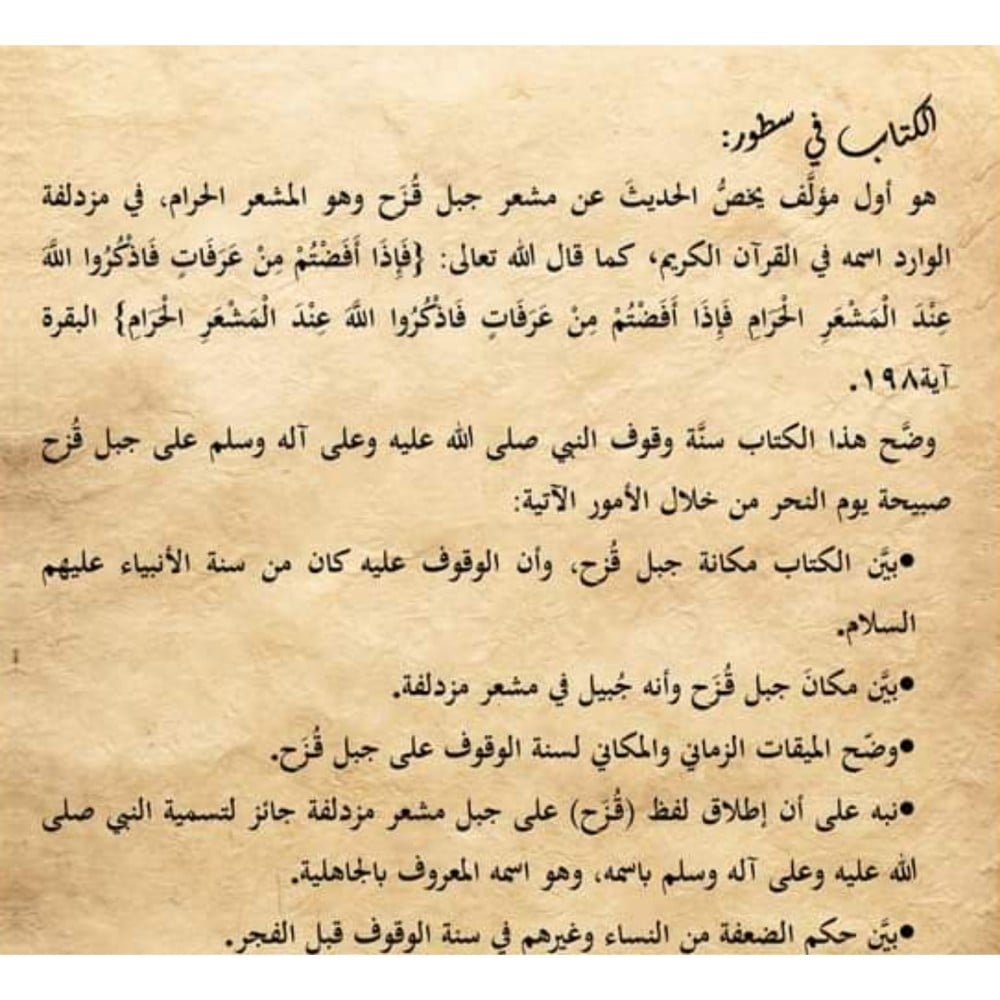 الكتاب في سطور:
هو أول مؤلَّف يخصُّ الحديثَ عن مشعر جبل قُزَح وهو المشعر الحرام، في مزدلفة
الوارد اسمه في القرآن الكريم، كما قال الله تعالى: {فَإِذَا أَفَضْتُمْ مِنْ عَرَفَاتٍ فَاذْكُرُوا اللَّهَ
عِنْدَ الْمَشْعَرِ الْحَرَامِ فَإِذَا أَفَضْتُمْ مِنْ عَرَفَاتٍ فَاذْكُرُوا اللَّهَ عِنْدَ الْمَشْعَرِ الْحَرَامِ} البقرة
آية١٩٨.
وضَّح هذا الكتاب سنَّة وقوف النبي صلى الله عليه وعلى آله وسلم على جبل قُزح
صبيحة يوم النحر من خلال الأمور الآتية:
●بيَّن الكتاب مكانة جبل قُزح، وأن الوقوف عليه كان من سنة الأنبياء عليهم
السلام.
●بيَّن مكانَ جبل قُزَح وأنه جُبيل في مشعر مزدلفة.
●وضّح الميقات الزماني والمكاني لسنة الوقوف على جبل قُزَح.
●نبه على أن إطلاق لفظ (قُزَح) على جبل مشعر مزدلفة جائز لتسمية النبي صلى
الله عليه وعلى آله وسلم باسمه، وهو اسمه المعروف بالجاهلية.
●بيَّن حكم الضعفة من النساء وغيرهم في سنة الوقوف قبل الفجر.